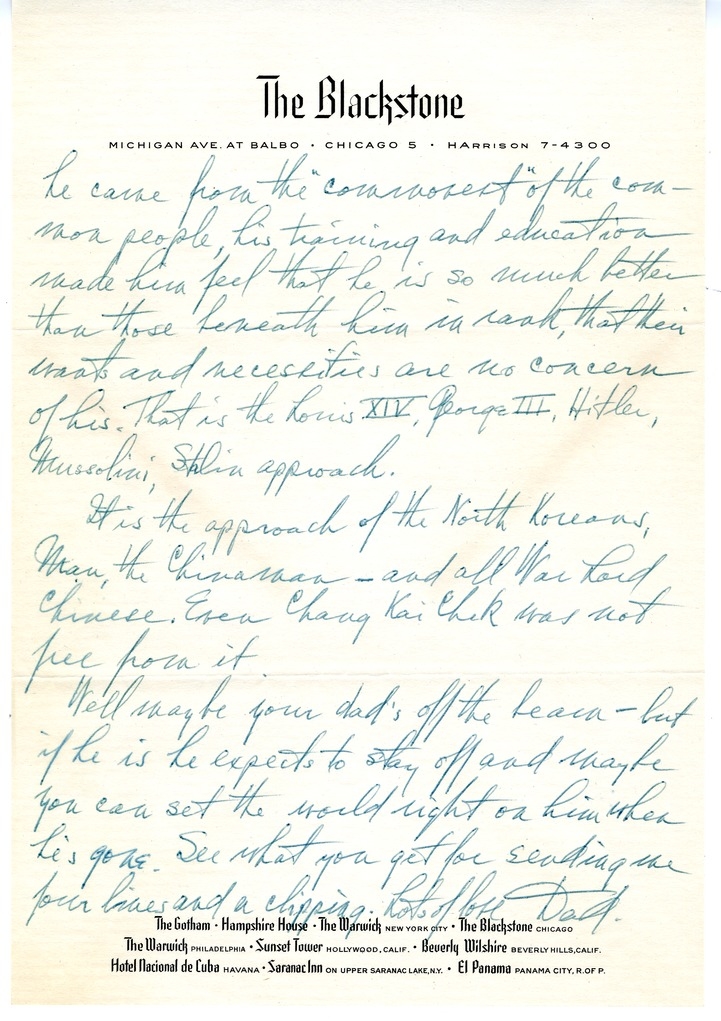 The Blackstone
MICHIGAN AVE. AT BALBO • CHICAGO 5 • HARRISON 7-4300
he came from the "commonest" of the com-
mon people, his training and education
made him feel that he is so much better
than those beneath him in rank, that their
wants and necessities are no concern
of his. That is the Louis XIV, George III, Hitler,
Mussolini, Stalin approach.
It is the approach of the North Koreans,
Mao, the Chinaman – and all War Lord
Chinese. Even Chang Kai Chek was not
free from it
Well maybe your dad's off the beam – but
if he is he expects to stay off and maybe
you can set the world right on him when
he's gone. See what you get for sending me
four lines and a clipping. Lots of love Dad.
The Gotham • Hampshire House • The Warwick NEW YORK CITY • The Blackstone CHICAGO
The Warwick PHILADELPHIA • Sunset Tower HOLLYWOOD, CALIF. • Beverly Wilshire BEVERLY HILLS, CALIF.
Hotel Nacional de Cuba HAVANA • Saranac Inn ON UPPER SARANAC LAKE, N.Y. • El Panama PANAMA CITY, R. OF P.